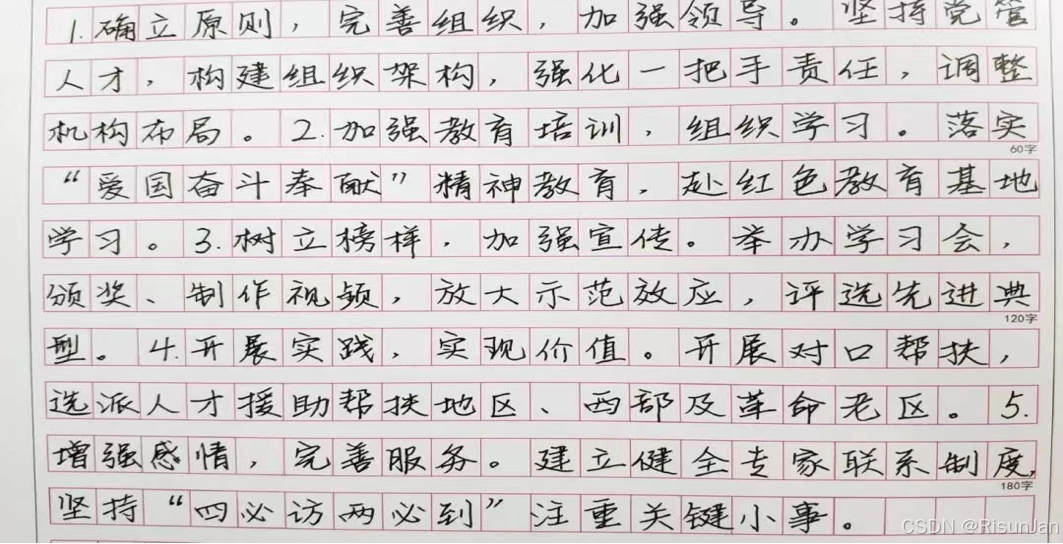 1.确立原则，完善组织，加强领导。坚持党管
人才，构建组织架构，强化一把手责任，调整
机构布局。2.加强教育培训，组织学习。落实
60字
“爱国奋斗奉献”精神教育，赴红色教育基地
学习。3.树立榜样，加强宣传。举办学习会，
颁奖、制作视频，放大示范效应，评选先进典
120字
型。4.开展实践，实现价值。开展对口帮扶，
选派人才援助帮扶地区、西部及革命老区。5.
增强感情，完善服务。建立健全专家联系制度，
180字
坚持“四必访两必到”注重关键小事。
CSDN @RisunJan